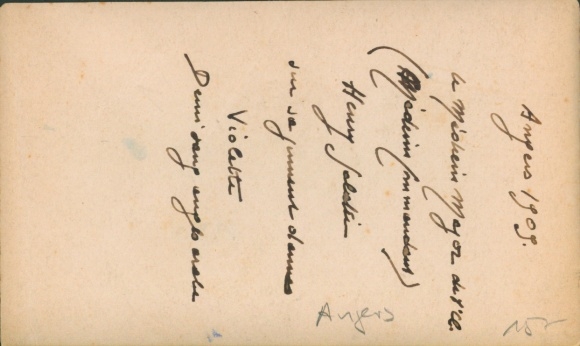 Angers 1909.
le Médecin Major de 1e cl.
(Médecin Commandant)
Henry
sur sa jument d'armes
Violette
Demi sang anglo arabe
Angers
15F